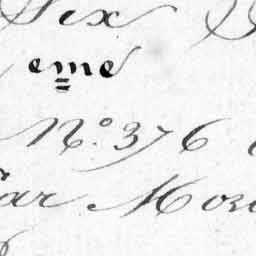 Six
eme
N.º 376
ar Mor